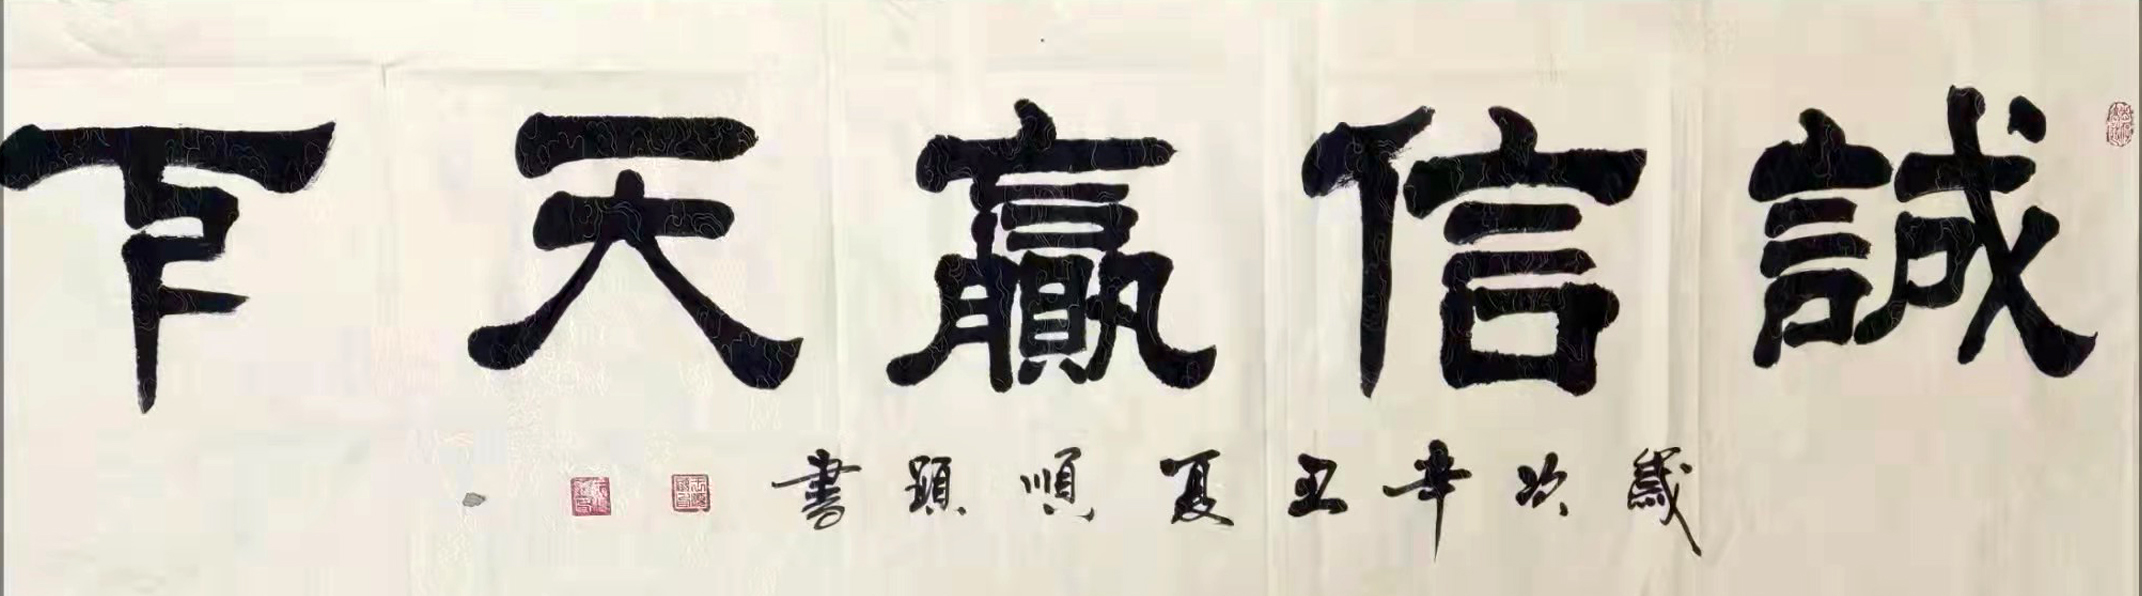 誠信贏天下
歲次辛丑夏順頭書